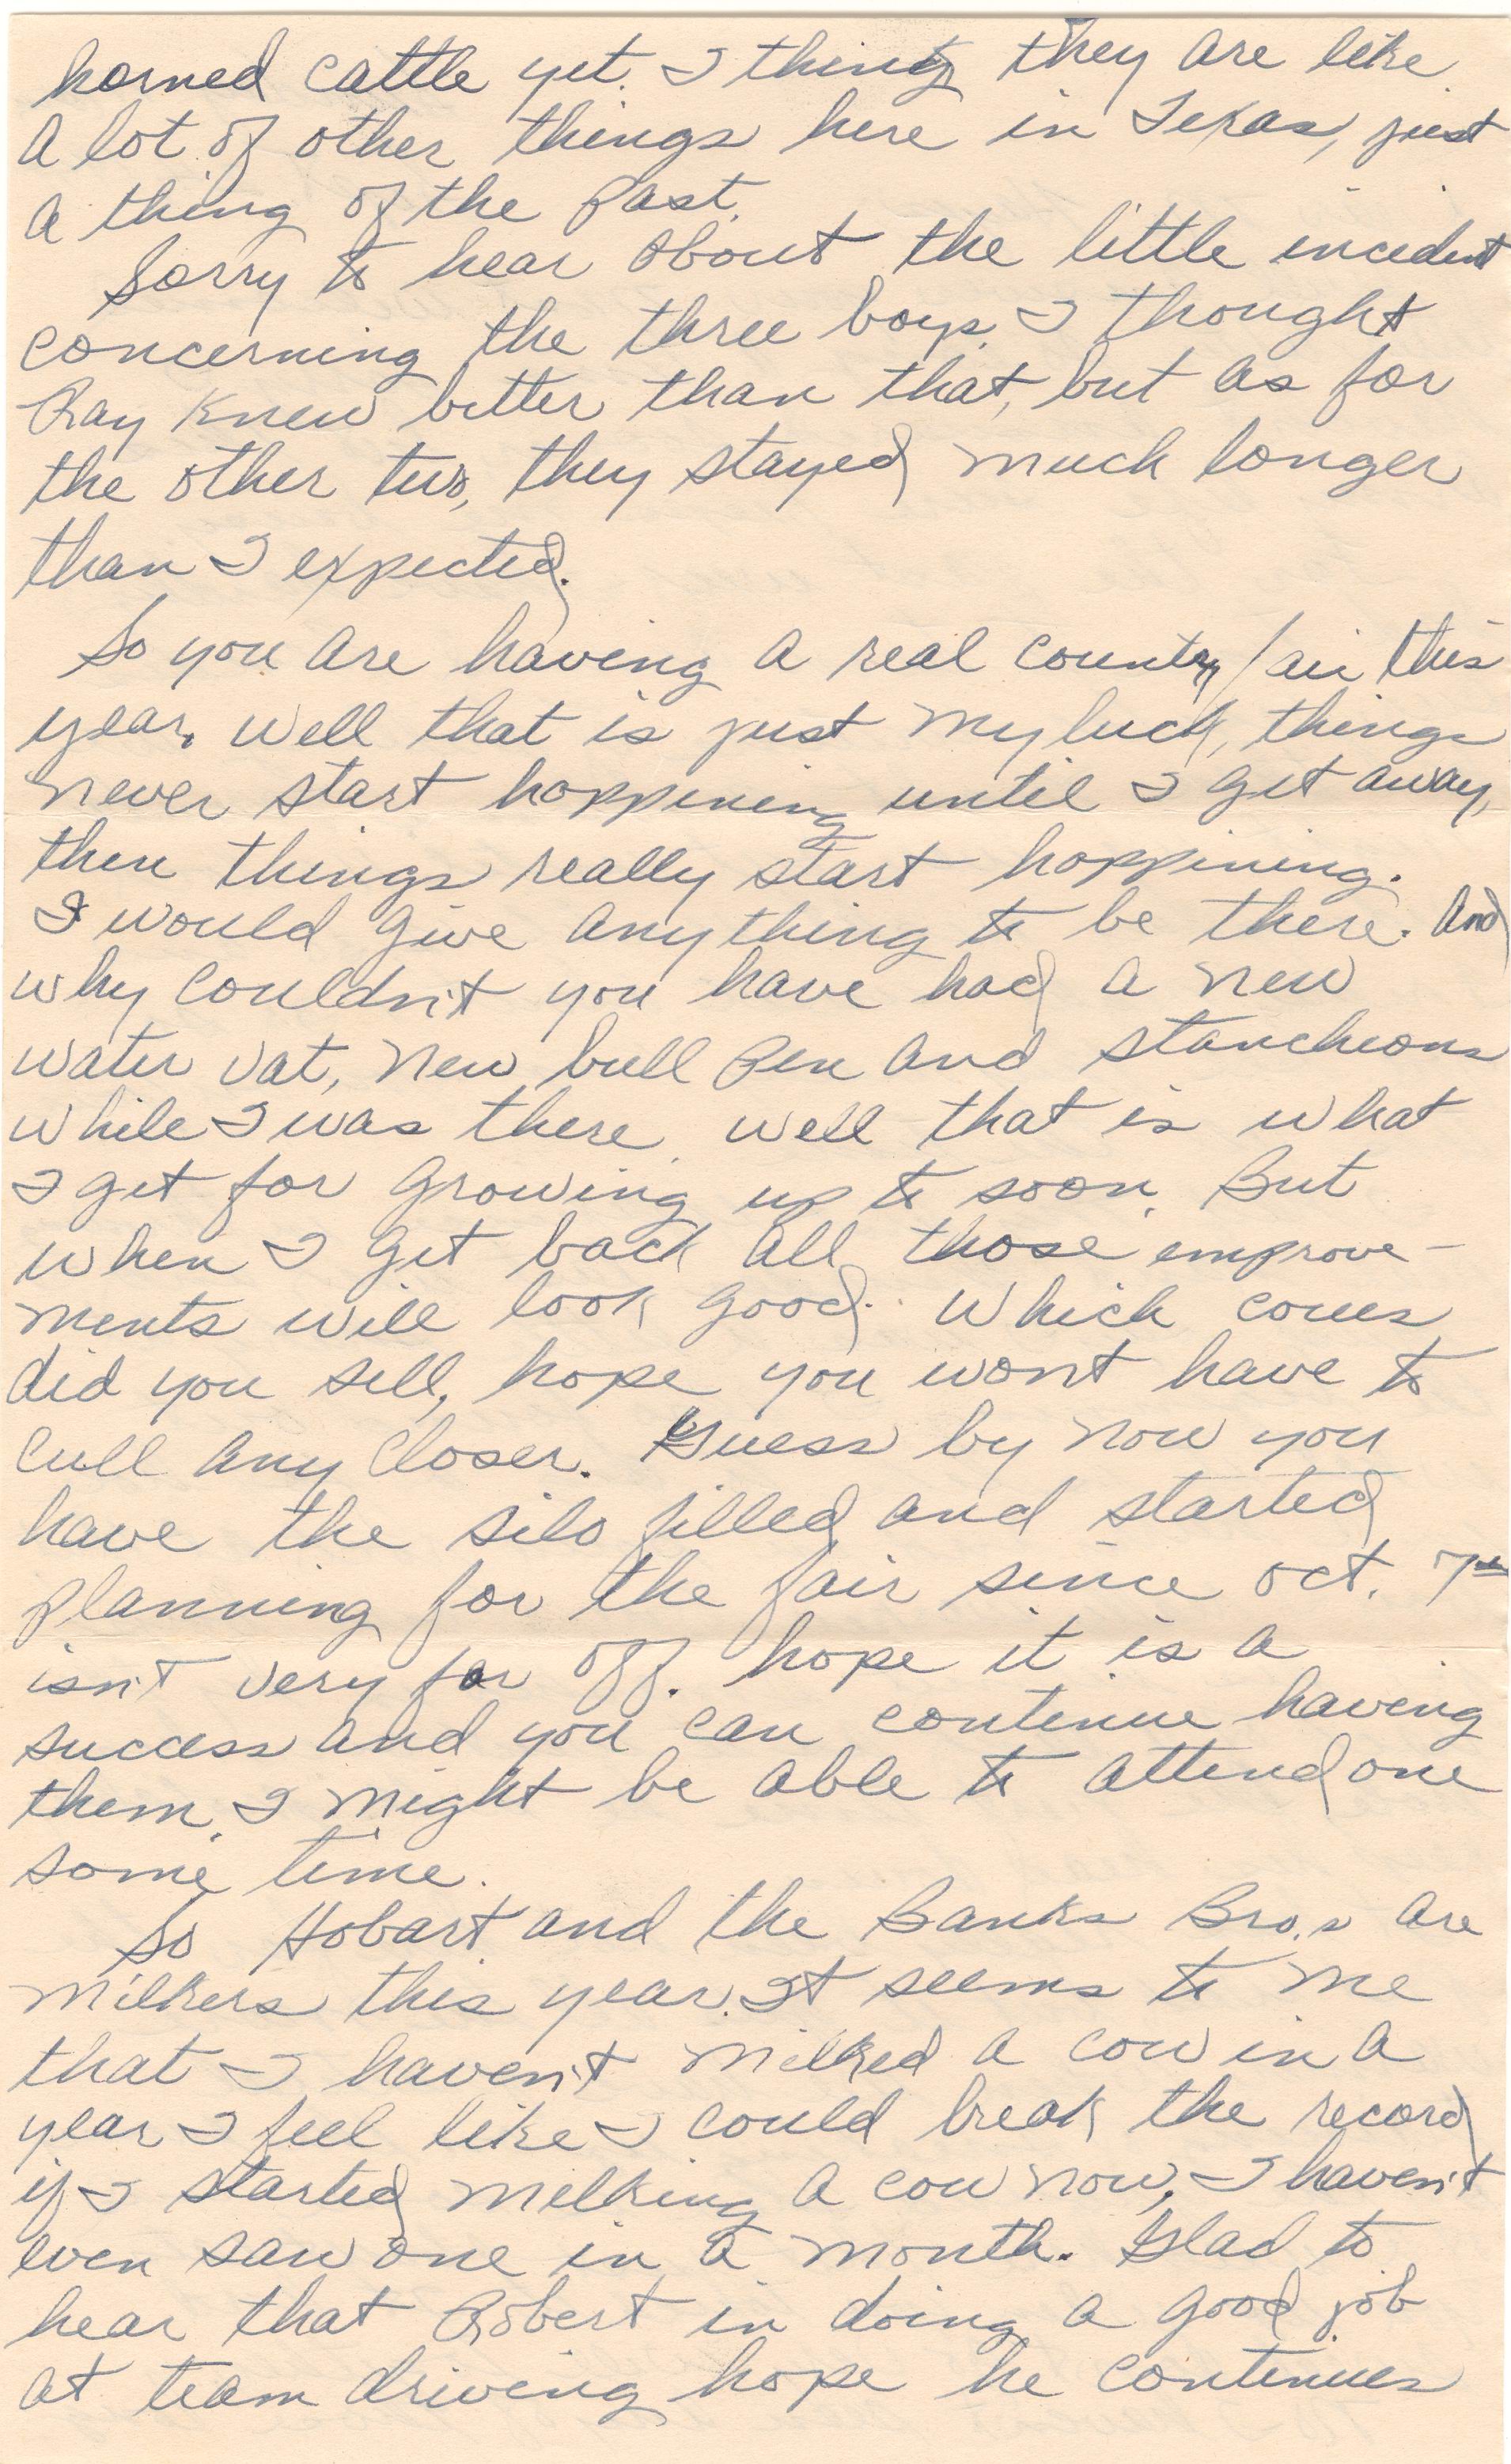 horned cattle yet. I think they are like
a lot of other things here in Texas, just
a thing of the past.
Sorry to hear about the little incedent
concerning the three boys. I thought
Ray knew better than that, but as for
the other two, they stayed much longer
than I expected.
So you are having a real country fair this
year, well that is just my luck, things
never start hoppining until I get away,
then things really start hoppining.
I would give anything to be there. And
why couldn't you have had a new
water vat, new bull pen and stancheons
while I was there. well that is what
I get for growing up to soon. But
when I get back all those improve-
ments will look good. Which cows
did you sell, hope you won't have to
cull any closer. Guess by now you
have the silo filled and started
planning for the fair since Oct. 7th
isn't very far off. hope it is a
success and you can continue having
them. I might be able to attend one
some time.
So Hobart and the Banks Bro.s are
milkers this year. It seems to me
that I haven't milked a cow in a
year I feel like I could break the record
if I started milking a cow now, I haven't
even saw one in a month. Glad to
hear that Robert in doing a good job
at team driving hope he continues